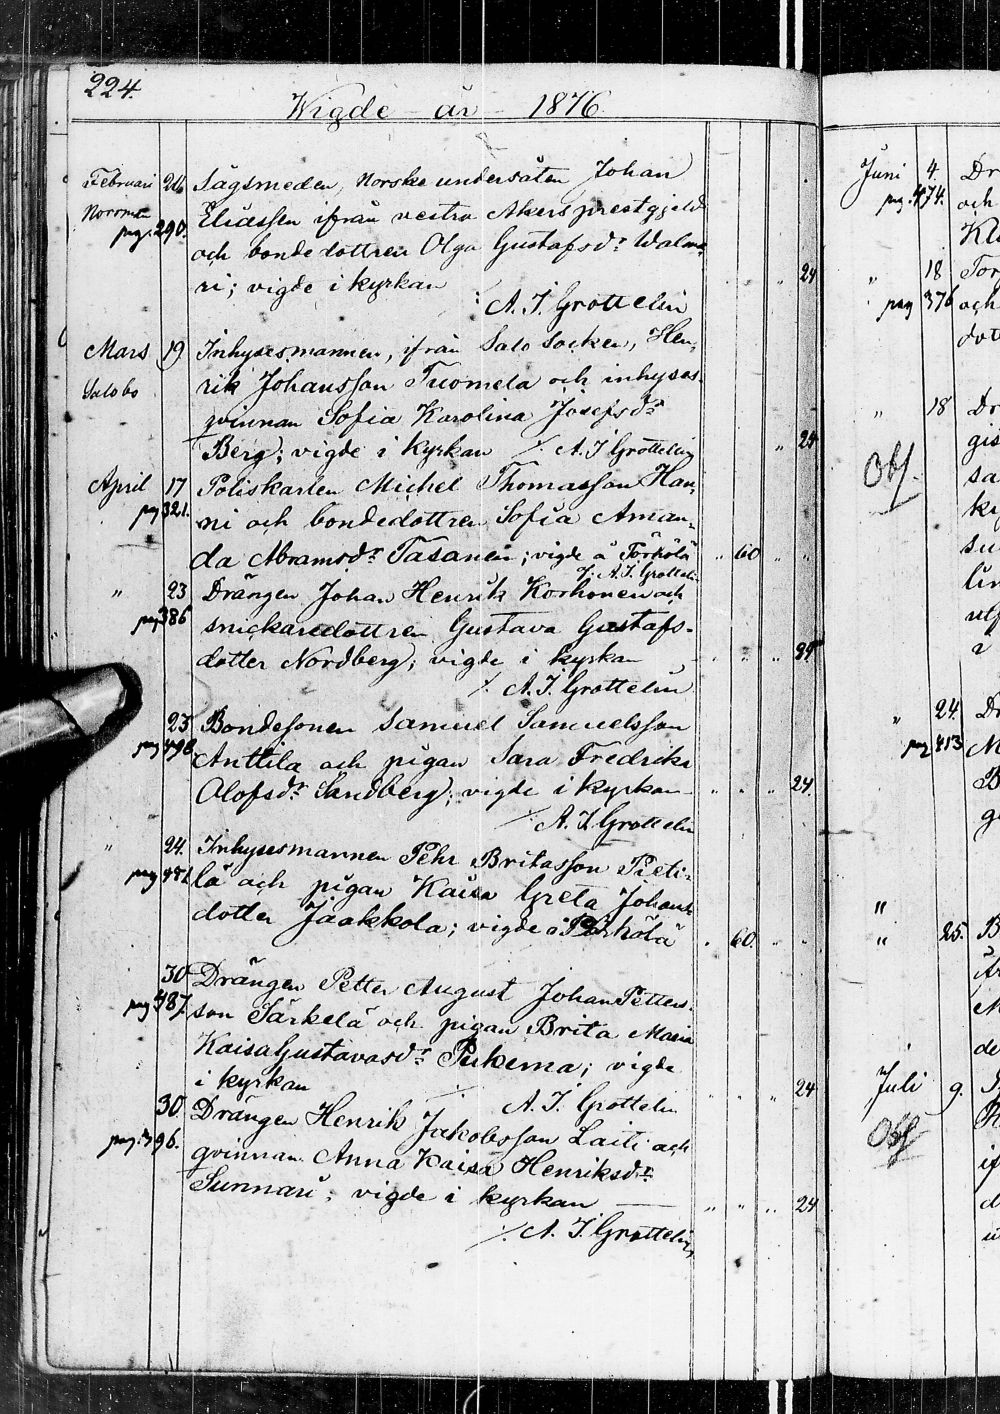 224.
Wigde år 1876
Februari 26 Sågsmeden, Norske undersåten Johan
Norrmän pag. 290. Eliassen ifrån vestra Akers prestgjeld
och bonde dottren Olga Gustafsdr Walma,
ri; vigde i kyrkan " 24
A. I. Grottelin
Mars 19 Inhysesmannen, ifrån Salo Socken, Hen,
Salobo rik Johansson Tuomela och inhyses-
qvinnan Sofia Karolina Josefsdr
Berg; vigde i Kyrkan ./. A. I Grottelin " 24
April 17 Poliskarlen Michel Thomasson Han,
pag 321. ni och bondedottren Sofia Aman,
da Abramsdr Tasanen; vigde å Törhölä " 60 " "
./. A. I. Grottelin
" 23 Drängen Johan Henrik Korhonen och
pag 386 snickaredottren Gustava Gustafs-
dotter Nordberg; vigde i kyrkan " " " 24
./. A. I. Grottelin
23 Bondesonen Samuel Samuelsson
pag 498 Anttila och pigan Sara Fredrika
Olofsdr Sandberg; vigde i kyrkan " " " 24.
./. A. I. Grottelin
" 24. Inhysesmannen Pehr Britasson Pieti-
pag lä och pigan Kaisa Greta Johans
dotter Jaakkola; vigde å " 60. " "
30 Drängen Petter August Johan Petters-
pag 487. son Särkelä och pigan Brita Maria
Kaisa Gustavasdr Pukema; vigde
i kyrkan " " " 24
./. A. I. Grottelin
30. Drängen Henrik Jakobsson Laiti och
pag. 396. qvinnan Anna Kaisa Henriksdr
Sunnari; vigde i kyrkan " " " 24
./. A. I. Grottelin
Juni 4. Dr
pag. 474. och
Kl
" 18 Tor
pag 376 och
dot
" 18 Dr
gis
Obs. sa
ky
su
lin
utf
" 24. Dr
pag 413 M
B
ge
"
" 25. B
M
de
Juli 9.
Obs
if
d
u